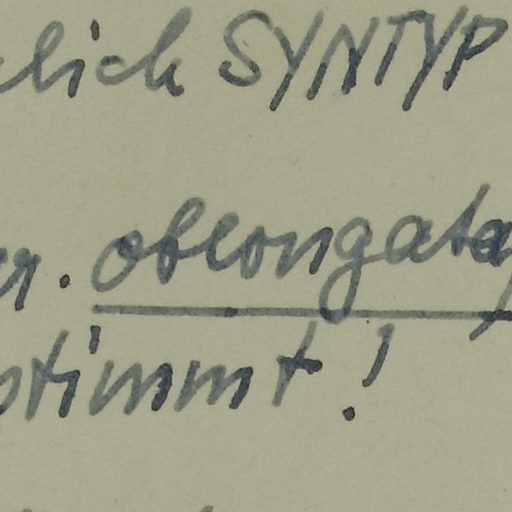 lich SYNTYP
er. oblongata,
stimmt!